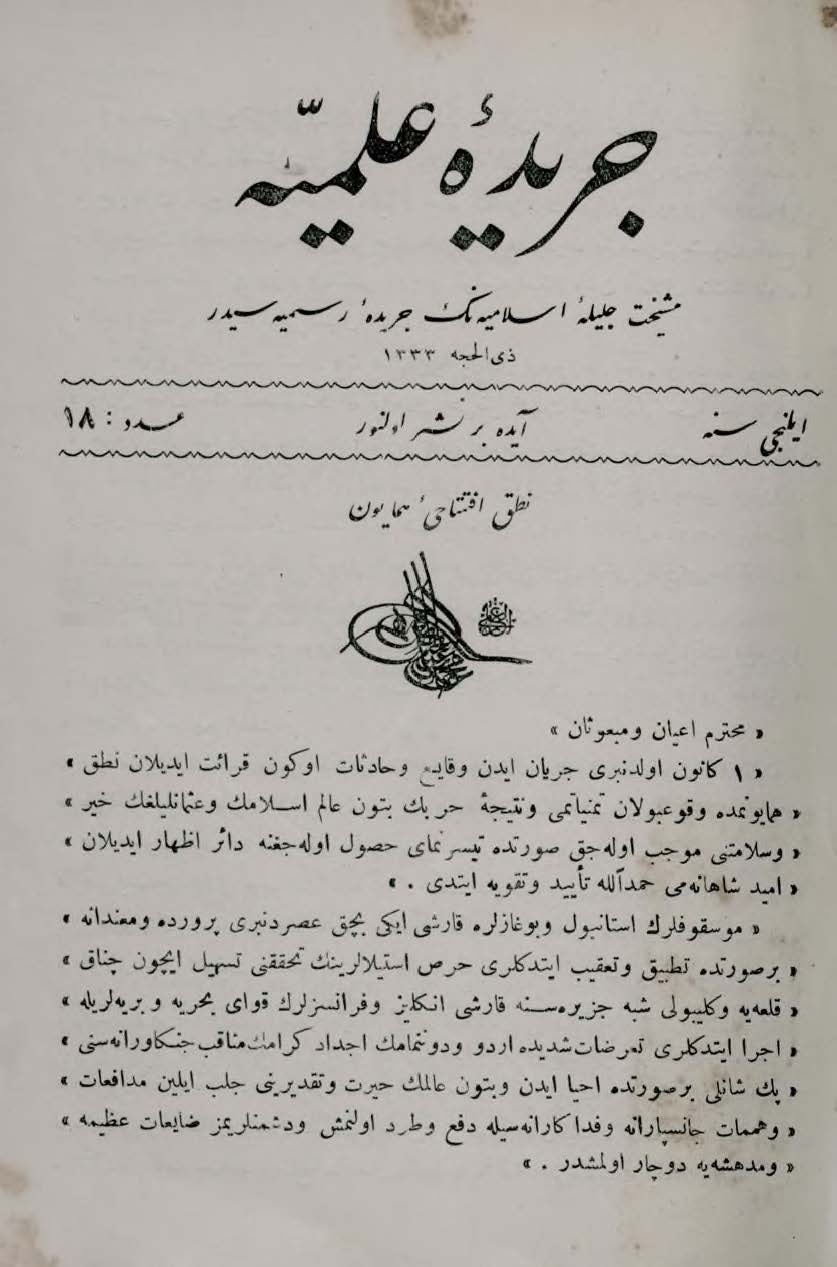 جريدهٔ علميّه
مشيخت جليلهٔ اسلاميه نك جريدهٔ رسميه سيدر
ذى الحجه ١٣٣٣
ايكنجى سنه
آيده بر نشر اولنور
عدد : ١٨
نطق افتتاحىٔ همايون
« محترم اعيان ومبعوثان »
« ١ كانون اولدنبرى جريان ايدن وقايع وحادثات اوكون قرائت ايديلان نطق »
« همايونمده وقوعبولان تمنياتمى ونتيجهٔ حربك بتون عالم اسلامك وعثمانليلغك خير »
« وسلامتنى موجب اوله جق صورتده تيسرنماى حصول اوله جغنه دائر اظهار ايديلان »
« اميد شاهانه مى حمدآلله تأييد وتقويه ايتدى . »
« موسقوفلرك استانبول وبوغازلره قارشى ايكى بچق عصردنبرى پرورده ومعندانه »
« برصورتده تطبيق وتعقيب ايتدكلرى حرص استيلالرينك تحققنى تسهيل ايچون چناق »
« قلعه يه وكليبولى شبه جزيره سنه قارشى انكليز وفرانسزلرك قواى بحريه و بريه لريله »
« اجرا ايتدكلرى تعرضات شديده اردو ودونتمامك اجداد كرامك مناقب جنكاورانه سنى »
« پك شانلى برصورتده احيا ايدن وبتون عالمك حيرت وتقديرينى جلب ايلين مدافعات »
« وهممات جانسپارانه وفداكارانه سيله دفع وطرد اولنمش ودشمنلريمز ضايعات عظيمه »
« ومدهشه يه دوچار اولمشدر . »